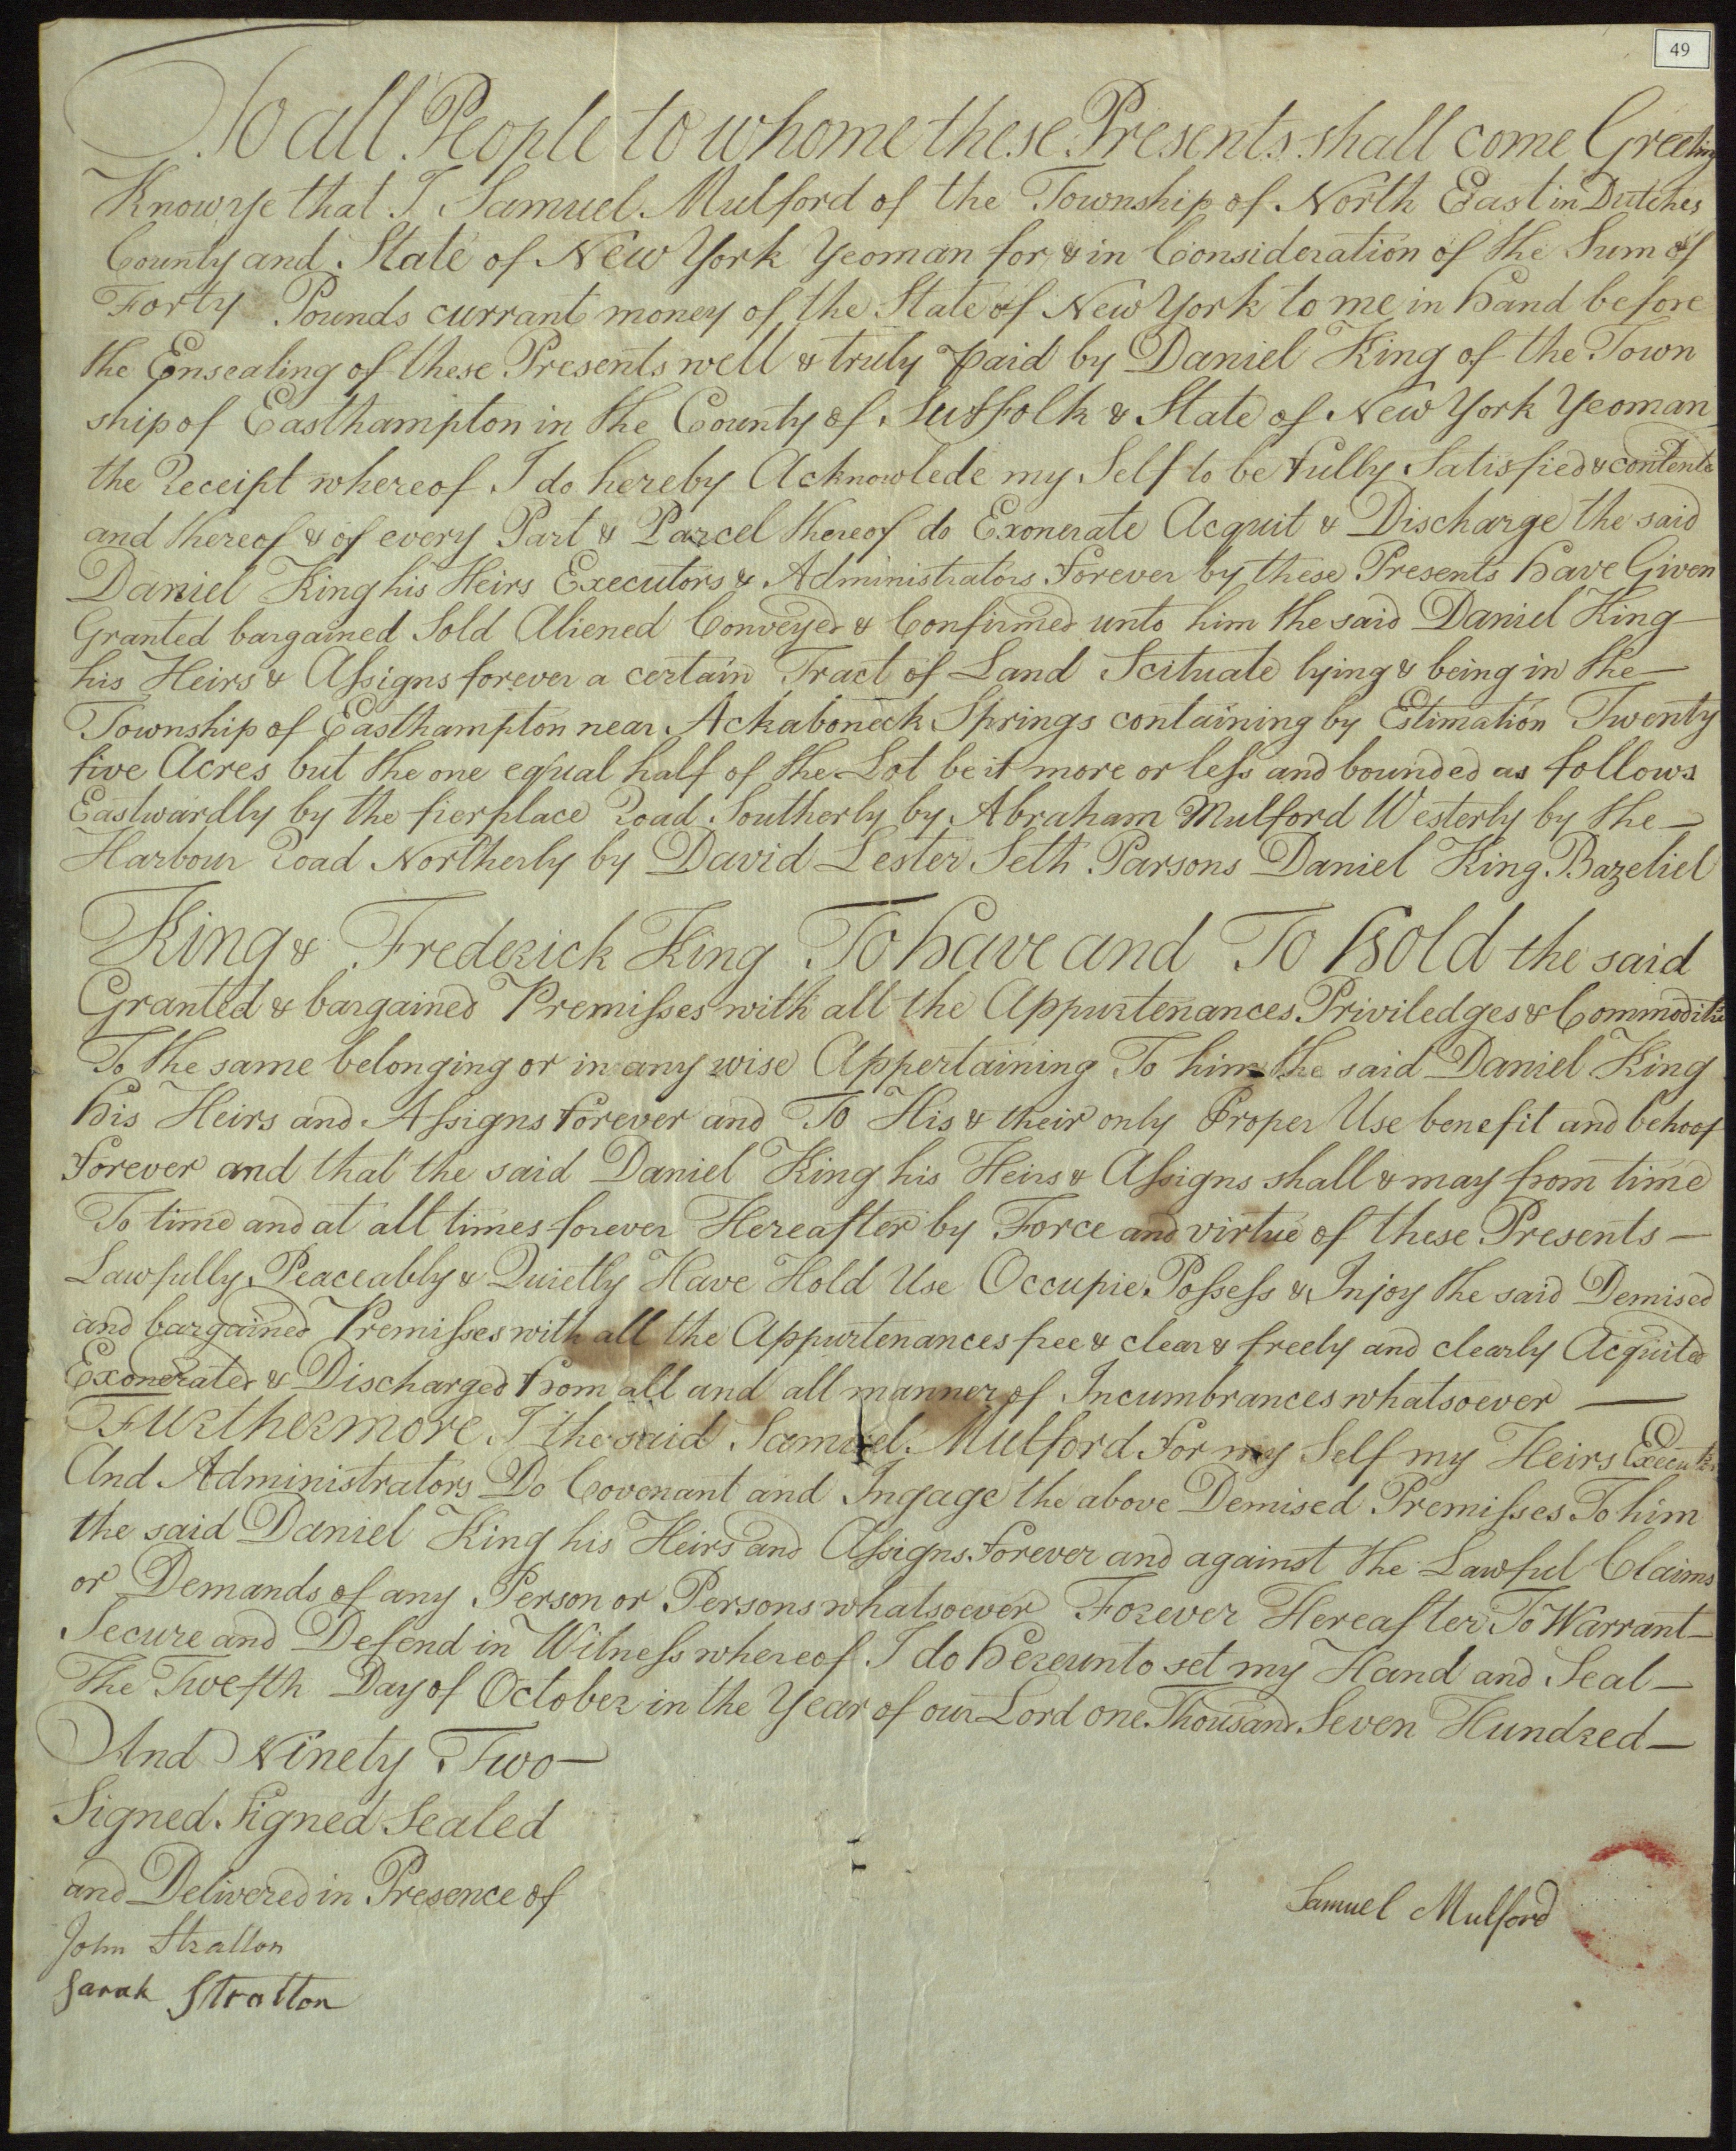 49
To all People to whome these Presents shall come Greeting
Know ye that I Samuel Mulford of the Township of North East in Dutches
County and State of New York Yeoman for & in Consideration of the Sum of
Forty Pounds currant money of the State of New York to me in hand before
the Ensealing of these Presents well & truly paid by Daniel King of the Town
ship of Easthampton in the County of Suffolk & State of New York Yeoman
the Receipt whereof I do hereby Acknowlede my Self to be fully Satisfied & contente
and thereof & of every Part & Parcel thereof do Exonerate Acquit & Discharge the said
Daniel King his Heirs Executors & Administrators forever by these Presents have Given
Granted bargained Sold Aliened Conveyed & Confirmed unto him the said Daniel King
his Heirs & Assigns forever a certain Tract of Land Scituate lying & being in the —
Township of Easthampton near Ackaboneck Springs containing by Estimation Twenty
five Acres but the one equal half of the Lot be it more or less and bounded as follows
Eastwardly by the fierplace Road Southerly by Abraham Mulford Westerly by the —
Harbour Road Northerly by David Lester Seth Parsons Daniel King Bazeliel
King & Frederick King To have and To hold the said
Granted & bargained Premisses with all the Appurtenances Priviledges & Commoditie
To the same belonging or in any wise Appertaining To him the said Daniel King
his Heirs and Assigns forever and To His & their only Proper Use benefit and behoof
forever and that the said Daniel King his Heirs & Assigns shall & may from time
To time and at all times forever Hereafter by Force and virtue of these Presents —
Lawfully Peaceably & Quietly Have Hold Use Occupie Possess & Injoy the said Demised
and bargained Premisses with all the Appurtenances free & clear & freely and clearly Acquited
Exonerated & Discharged from all and all manner of Incumbrances whatsoever —
Furthermore I the said Samuel Mulford for my Self my Heirs Executors
And Administrators Do Covenant and Ingage the above Demised Premisses To him
the said Daniel King his Heirs and Assigns forever and against the Lawful Claims
or Demands of any Person or Persons whatsoever Forever Hereafter To Warrant —
Secure and Defend in Witness whereof I do hereunto set my Hand and Seal —
The Twefth Day of October in the Year of our Lord one Thousand Seven Hundred —
And Ninety Two —
Signed Signed Sealed
and Delivered in Presence of
Samuel Mulford
John Stratton
Sarah Stratton